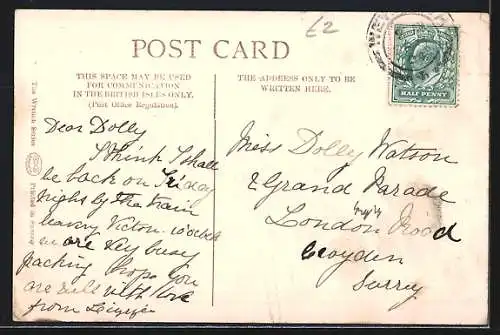 £2
POST CARD
THIS SPACE MAY BE USED
FOR COMMUNICATION
IN THE BRITISH ISLES ONLY.
(Post Office Regulation).
THE ADDRESS ONLY TO BE
WRITTEN HERE.
HALF PENNY
The Wrench Series
Printed in Saxony
Dear Dolly
I think I shall
be back on Friday
night by the train
leaving Victoria 10 o'clock
are very busy
packing hope you
are with love
from
Miss Dolly Watson
2 Grand Parade
London Road
Croyden
Surry